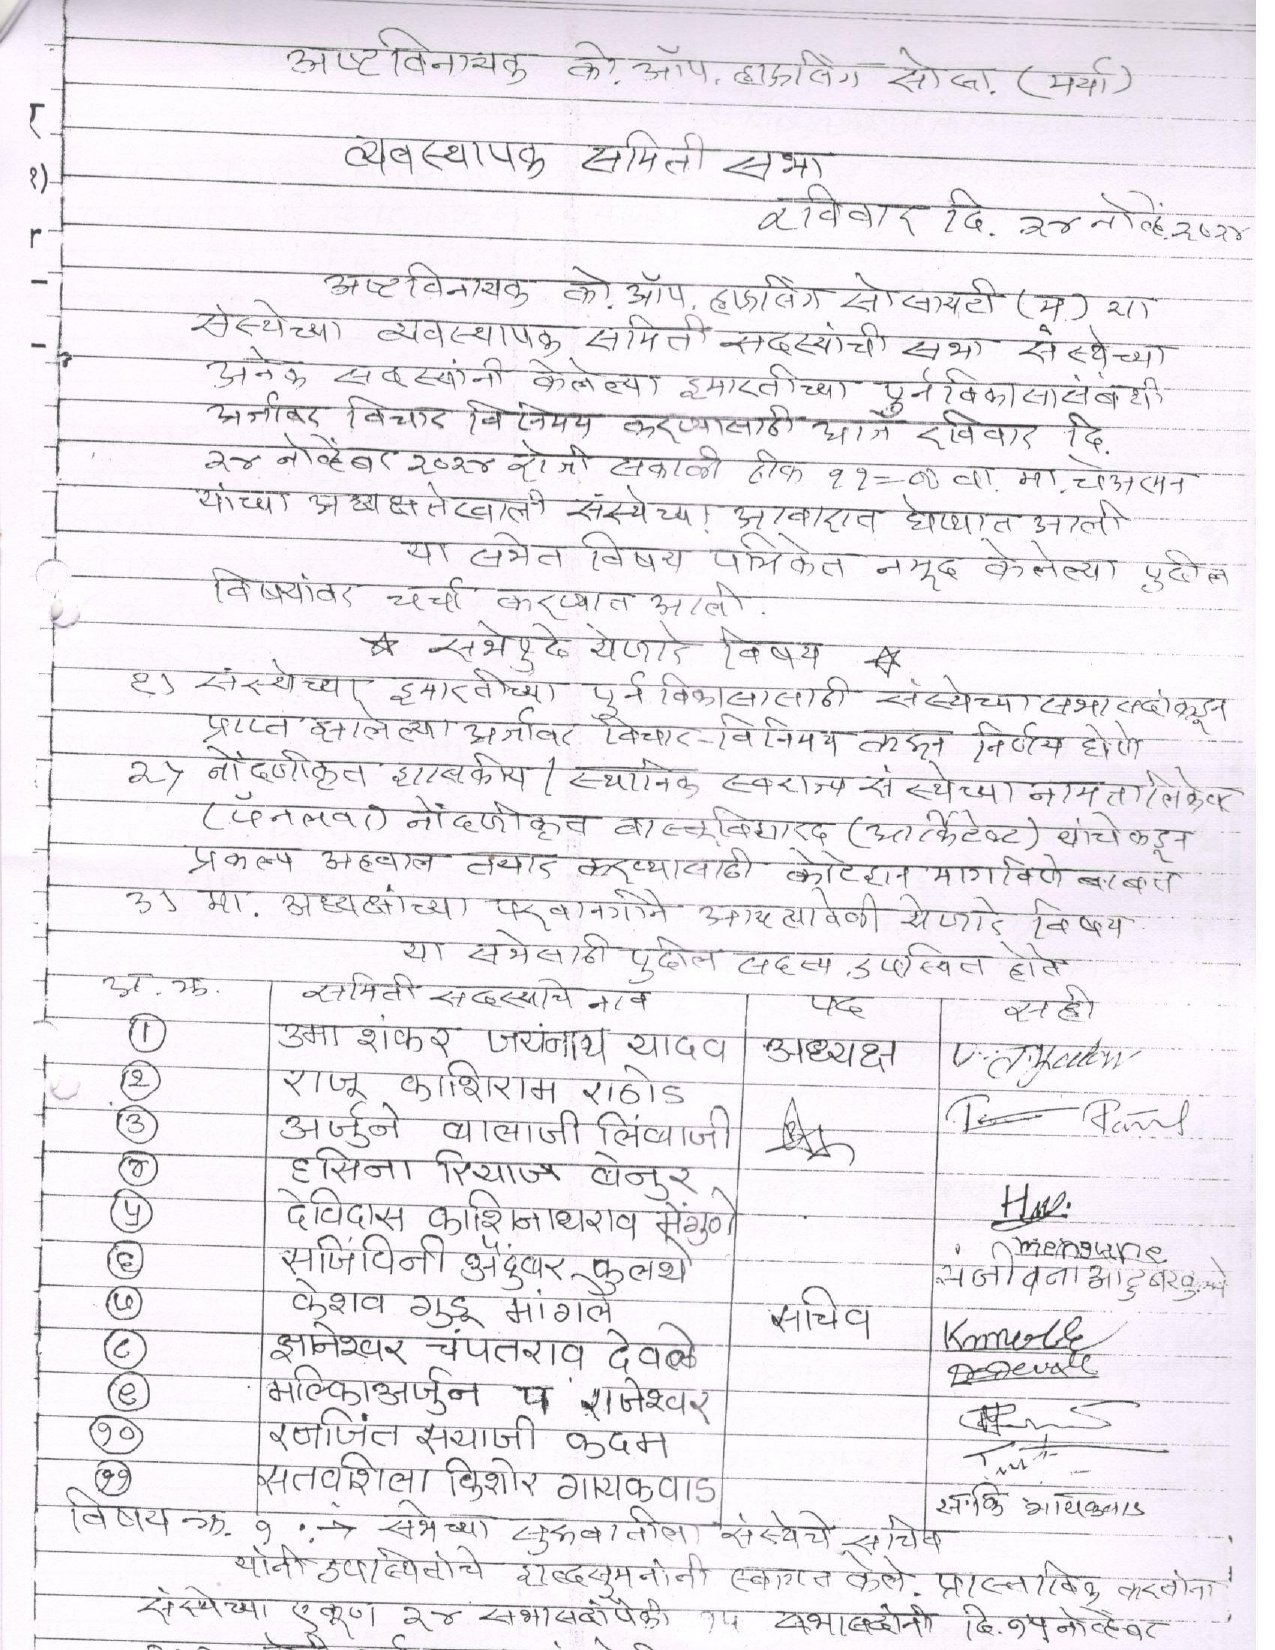 अष्टविनायक को. ऑप. हाऊसिंग सोसा. (मर्या)
व्यवस्थापक समिती सभा
रविवार दि. २४ नोव्हें. २०२४
अष्टविनायक को. ऑप. हाऊसिंग सोसायटी (म.) या
संस्थेच्या व्यवस्थापक समिती सदस्यांची सभा संस्थेच्या
अनेक सदस्यांनी केलेल्या इमारतीच्या पुर्नविकासासंबंधी
अर्जावर विचार विनिमय करण्यासाठी आज रविवार दि.
२४ नोव्हेंबर २०२४ रोजी सकाळी ठीक ११=०० वा. मा. चेअरमन
यांच्या अध्यक्षतेखाली संस्थेच्या आवारात घेण्यात आली
या सभेत विषय पत्रिकेत नमूद केलेल्या पुढील
विषयांवर चर्चा करण्यात आली.
☆ सभेपुढे येणारे विषय ☆
१) संस्थेच्या इमारतीच्या पुर्नविकासासाठी संस्थेच्या सभासदांकडून
प्राप्त झालेल्या अर्जावर विचार-विनिमय करून निर्णय होणे
२) नोंदणीकृत शासकीय / स्थानिक स्वराज्य संस्थेच्या नामतालिकेवर
(पॅनलवर) नोंदणीकृत वास्तूविशारद (आर्किटेक्ट) यांचेकडून
प्रकल्प अहवाल तयार करण्यासाठी कोटेशन मागविणे बाबत
३) मा. अध्यक्षांच्या परवानगीने आयत्यावेळी येणारे विषय
या सभेसाठी पुढील सदस्य उपस्थित होते
अ.क्र. समिती सदस्याचे नाव पद सही
१ उमाशंकर जयंनाथ यादव अध्यक्ष
२ राजू काशिराम राठोड
३ अर्जुने बालाजी लिंबाजी
४ हसिना रियाज बेनुर
५ देविदास काशिनाथराव मेंगुणे mengune
६ सजिंविनी औदुंबर कुलथे
७ केशव गुडू मांगले सचिव
८ ज्ञानेश्वर चंपतराव देवळे
९ मल्लिकाअर्जुन प राजेश्वर
१० रणजिंत सयाजी कदम
११ सतवशिला किशोर गायकवाड स.कि गायकवाड
विषय क्र. १ :→ सभेच्या सुरुवातीला संस्थेचे सचिव
यांनी उपस्थितांचे शब्दसुमनांनी स्वागत केले. प्रास्ताविक करतांना
संस्थेच्या एकूण २४ सभासदांपैकी १५ सभासदांनी दि. १५ नोव्हेंबर